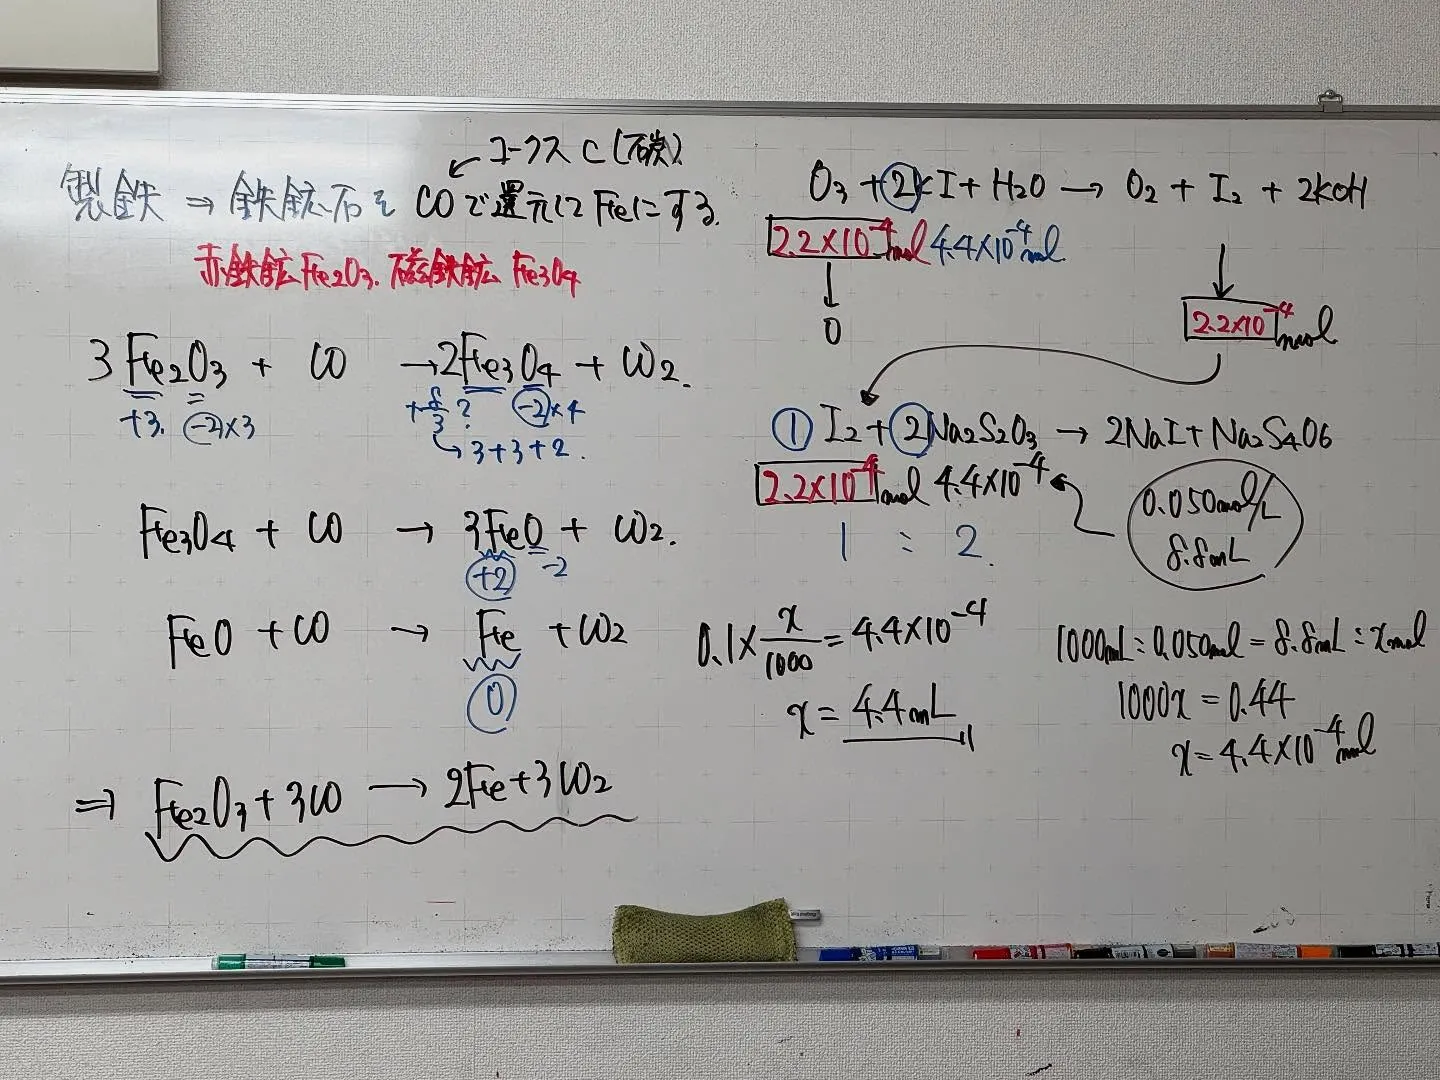 コークス C (石炭)
製鉄 ⇒ 鉄鉱石を COで還元してFeにする.
赤鉄鉱 Fe2O3. 磁鉄鉱 Fe3O4
3Fe2O3 + CO → 2Fe3O4 + CO2.
+3. -2×3 +8/3? -2×4
→ 3+3+2.
Fe3O4 + CO → 3FeO + CO2.
+2 -2
FeO + CO → Fe + CO2
0
⇒ Fe2O3 + 3CO → 2Fe + 3CO2
O3 + 2KI + H2O → O2 + I2 + 2KOH
2.2×10^-4 mol 4.4×10^-4 mol
↓
0
2.2×10^-4 mol
① I2 + 2Na2S2O3 → 2NaI + Na2S4O6
2.2×10^-4 mol 4.4×10^-4
1 : 2.
0.050mol/L
8.8mL
0.1 × x/1000 = 4.4×10^-4
x = 4.4mL
1000mL : 0.050mol = 8.8mL : x mol
1000x = 0.44
x = 4.4×10^-4 mol